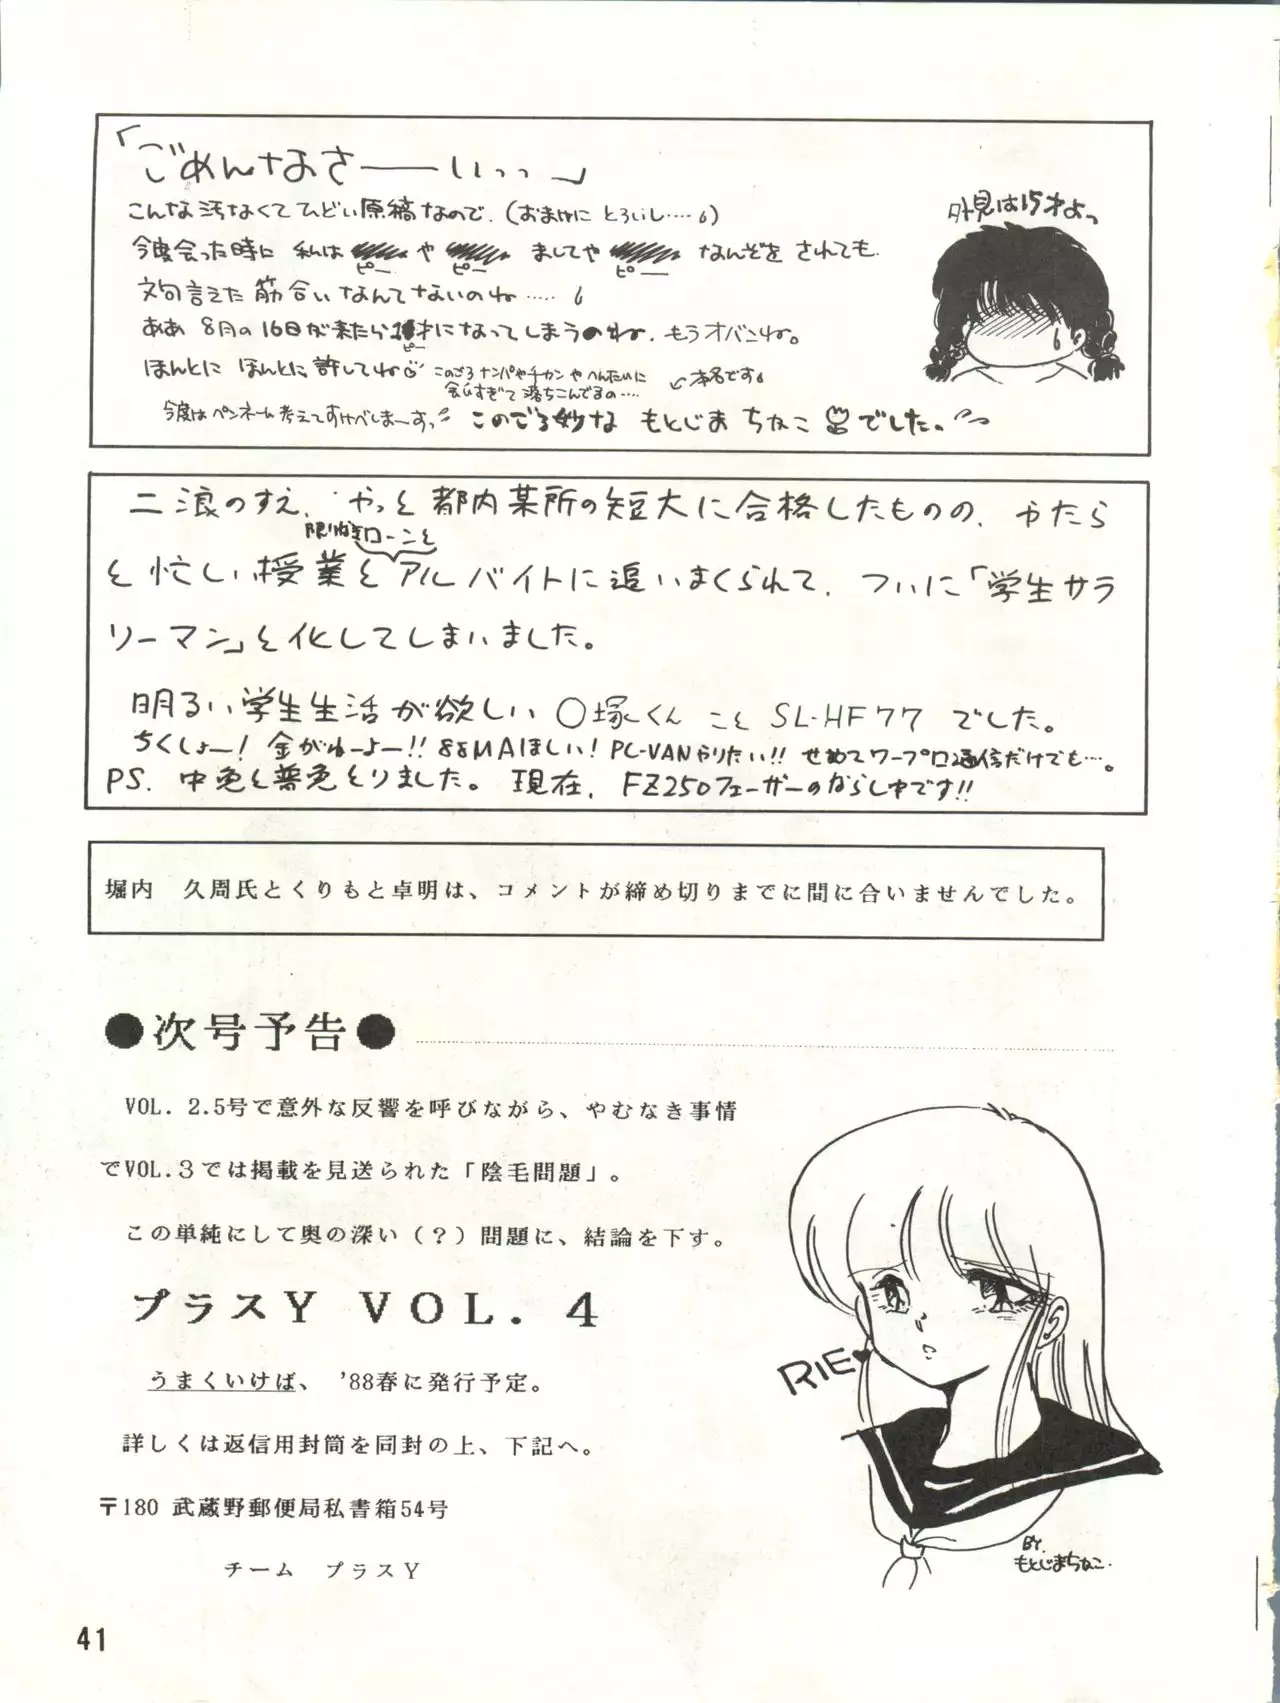 「ごめんなさ――いっっ」
こんな汚なくてひどい原稿なので、(おまけに とろいし‥‥)
今度会った時に 私は や ましてや なんぞを されても
ピー ピー ピー
文句言えた筋合いなんてないのね‥‥‥
ああ 8月の16日が来たら 才になってしまうのね、もうオバンね。
ピー
ほんとに ほんとに、許してね このごろ ナンパやチカンや へんたいに
会いすぎて 落ちこんでるの‥‥
本名です
今度はペンネーム考えてすけべしまーすっ このごろ妙な もとじま ちなこ でした。
外見は15才よっ
二浪のすえ、やっと都内某所の短大に合格したものの、やたら
限りなきローンと
と忙しい授業とアルバイトに追いまくられて、ついに「学生サラ
リーマン」と化してしまいました。
明るい学生生活が欲しい 〇塚くん こと SL-HF77 でした。
ちくしょー! 金がねーよー!! 88MAほしい! PC-VANやりたい!! せめてワープロ通信だけでも…。
PS. 中免と普免とりました。現在、FZ250フェーザーのならし中です!!
堀内 久周氏とくりもと卓明は、コメントが締め切りまでに間に合いませんでした。
●次号予告●
VOL. 2.5号で意外な反響を呼びながら、やむなき事情
でVOL.3では掲載を見送られた「陰毛問題」。
この単純にして奥の深い(?)問題に、結論を下す。
プラスY VOL. 4
うまくいけば、 '88春に発行予定。
詳しくは返信用封筒を同封の上、下記へ。
〒180 武蔵野郵便局私書箱54号
チーム プラスY
RIE♥
BY.
もとじまちなこ.
41